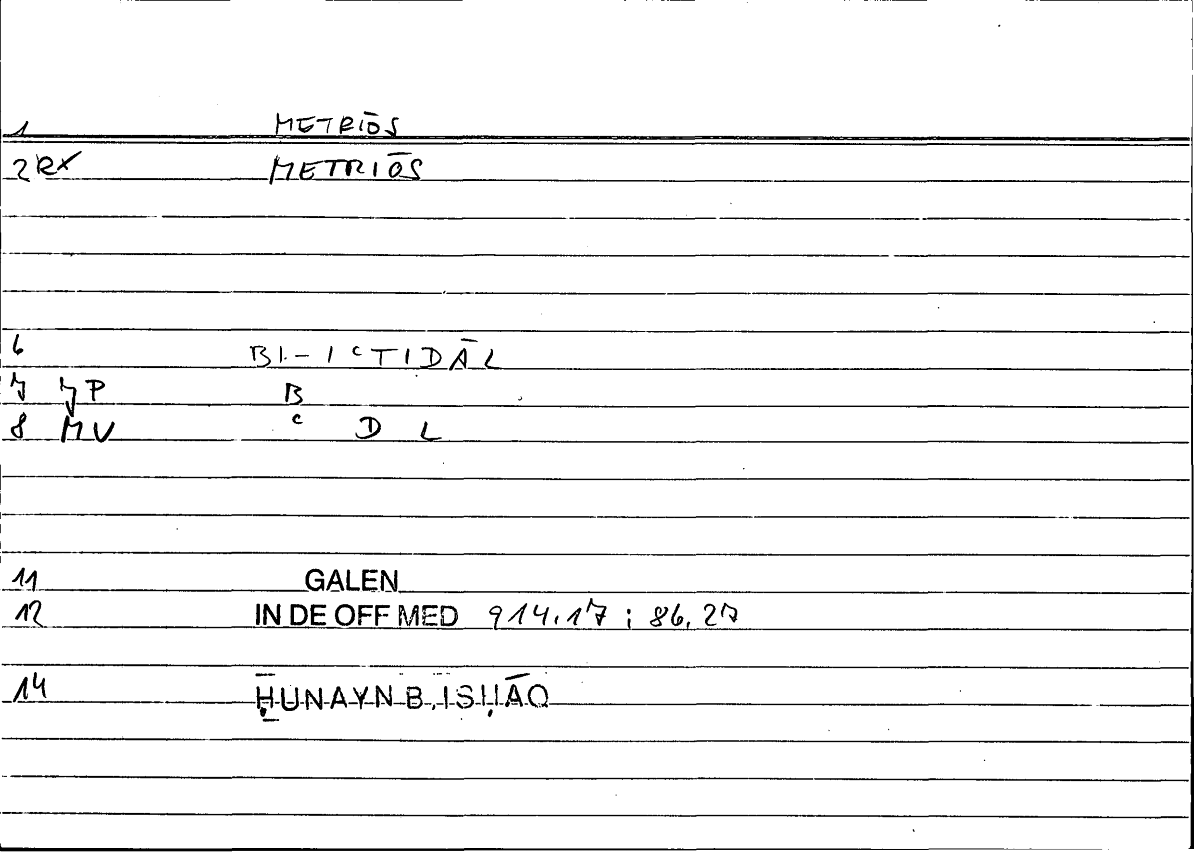 1 METRIŌS
2 RX METRIŌS
6 BI-IcTIDĀL
7 JP B
8 MV c D L
11 GALEN
12 IN DE OFF MED 914,17 ; 86,27
14 ḤUNAYN B. ISḤĀQ